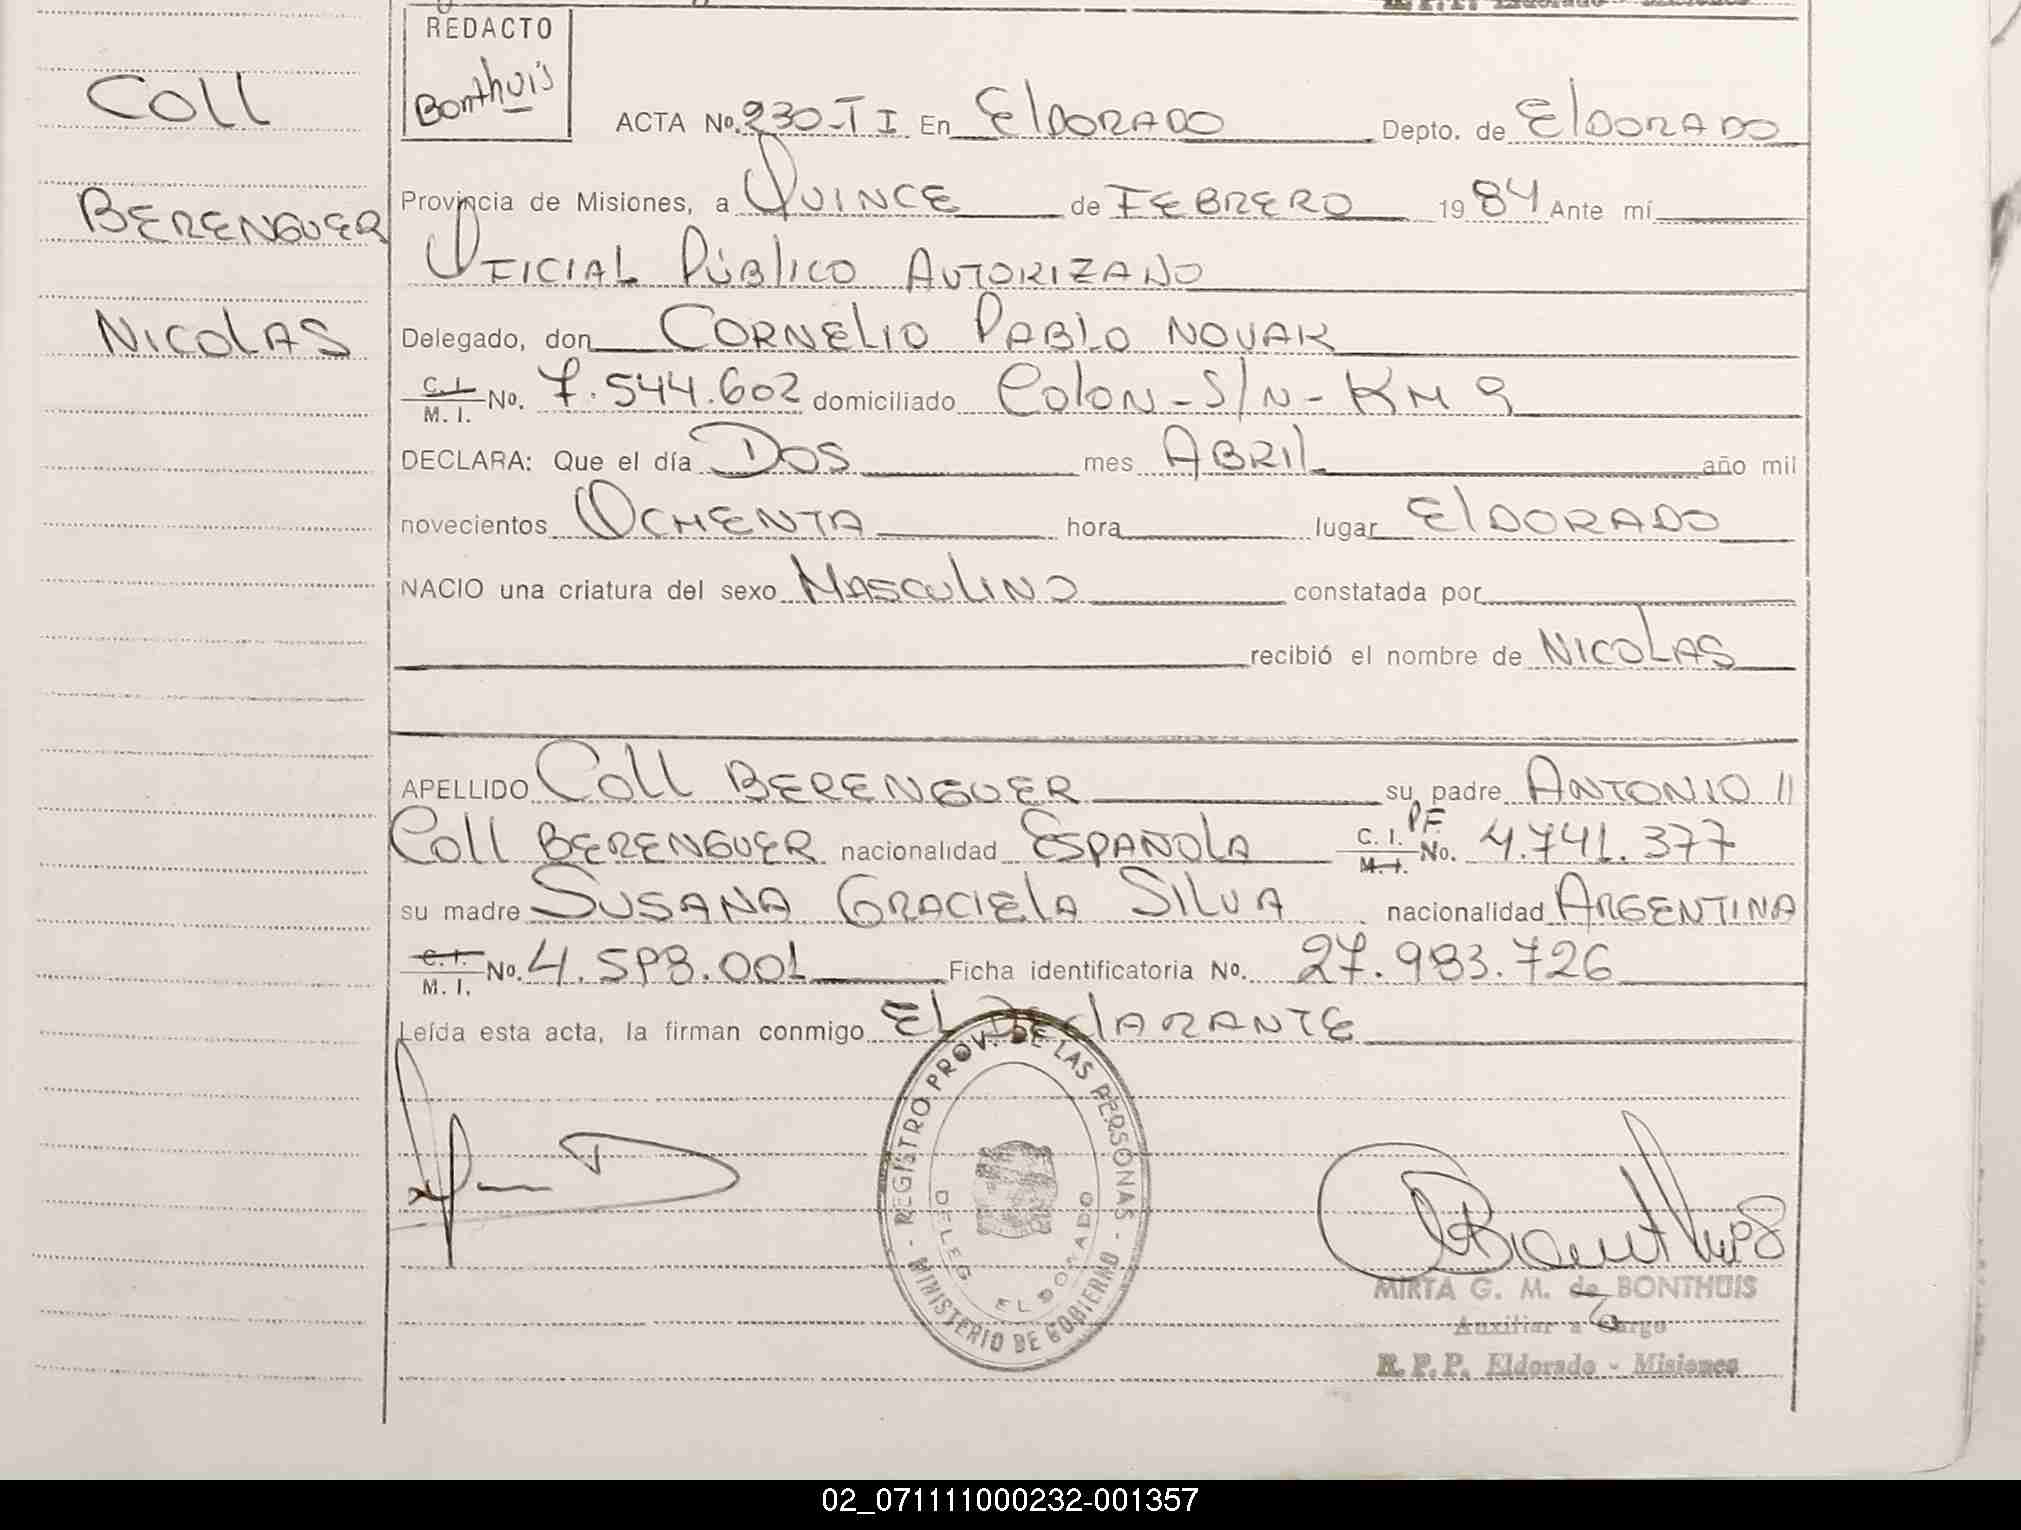 REDACTO
Bonthuis
Coll
BERENGUER
NICOLAS
ACTA No. 230-T I En ElDORADO Depto. de ElDORADO
Provincia de Misiones, a QUINCE de FEBRERO 1984 Ante mí
OFICIAL PÚBLICO AUTORIZADO
Delegado, don CORNELIO PABLO NOVAK
C. I. M. I. No. 7.544.602 domiciliado COLON-S/N-KM 9
DECLARA: Que el día DOS mes ABRIL año mil
novecientos OCHENTA hora lugar ElDORADO
NACIO una criatura del sexo MASCULINO constatada por
recibió el nombre de NICOLAS
APELLIDO Coll BERENGUER su padre ANTONIO //
Coll BERENGUER nacionalidad ESPAÑOLA C. I. M. I. P.F. No. 4.741.377
su madre SUSANA GRACIELA SILVA nacionalidad ARGENTINA
C. I. M. I. No. 4.598.001 Ficha identificatoria No. 27.983.726
Leída esta acta, la firman conmigo EL DEClARANTE
- REGISTRO PROV. DE LAS PERSONAS -
MINISTERIO DE GOBIERNO
DELEG. ELDORADO
MIRTA G. M. de BONTHUIS
Auxiliar a Cargo
R. P. P. Eldorado - Misiones
02_071111000232-001357